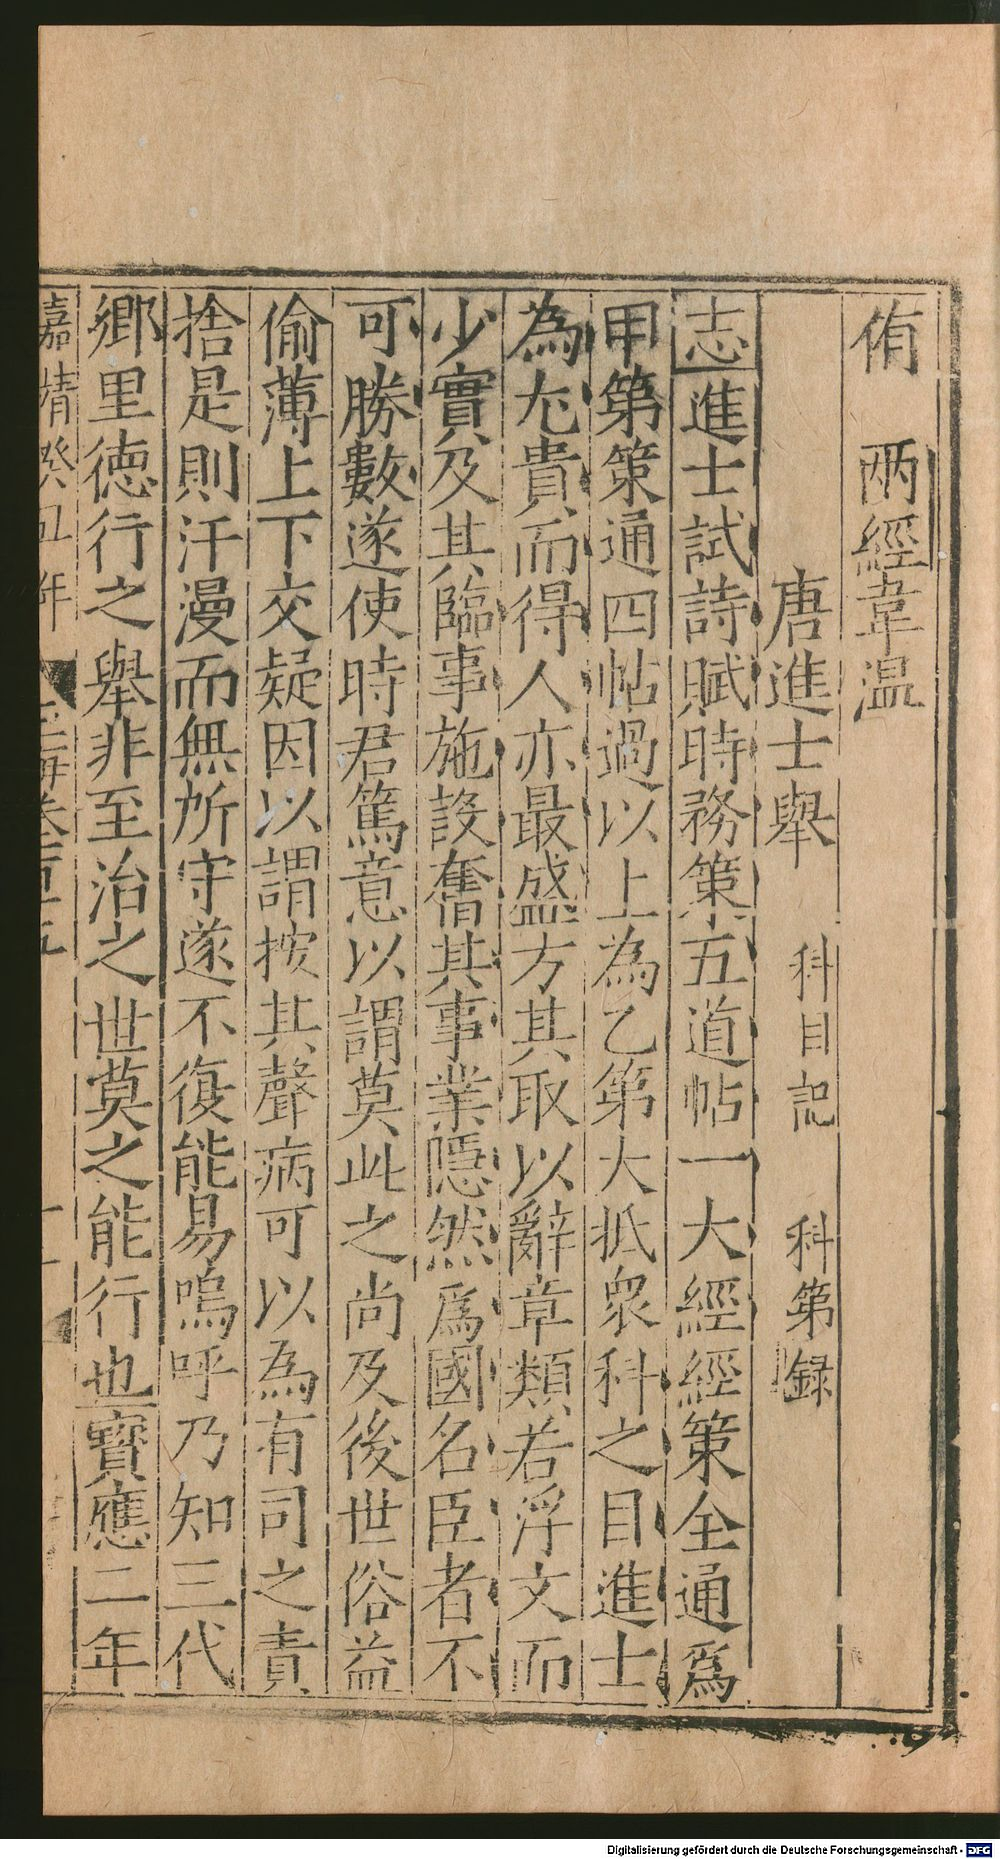 侑　两經韋温
唐進士舉　科目記　科第録
志進士試詩賦時務策五道帖一大經經策全通爲
甲第策通四帖過以上為乙第大抵衆科之目進士
為尤貴而得人亦最盛方其取以辭章類若浮文而
少實及其臨事施設奮其事業隱然爲國名臣者不
可勝數遂使時君篤意以謂莫此之尚及後世俗益
偷薄上下交疑因以謂按其聲病可以為有司之責
捨是則汗漫而無所守遂不復能易嗚呼乃知三代
鄉里德行之舉非至治之世莫之能行也寶應二年
嘉靖癸丑年　玉海卷一百十五
Digitalisierung gefördert durch die Deutsche Forschungsgemeinschaft - DFG